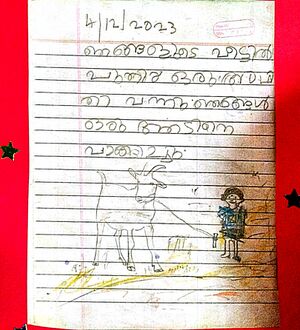 4/12/2023
ഞങ്ങളുടെ വീട്ടിൽ
പുതിയ ഒരു
തി വന്നു ഞങ്ങൾ
ഒരു ആടിനെ